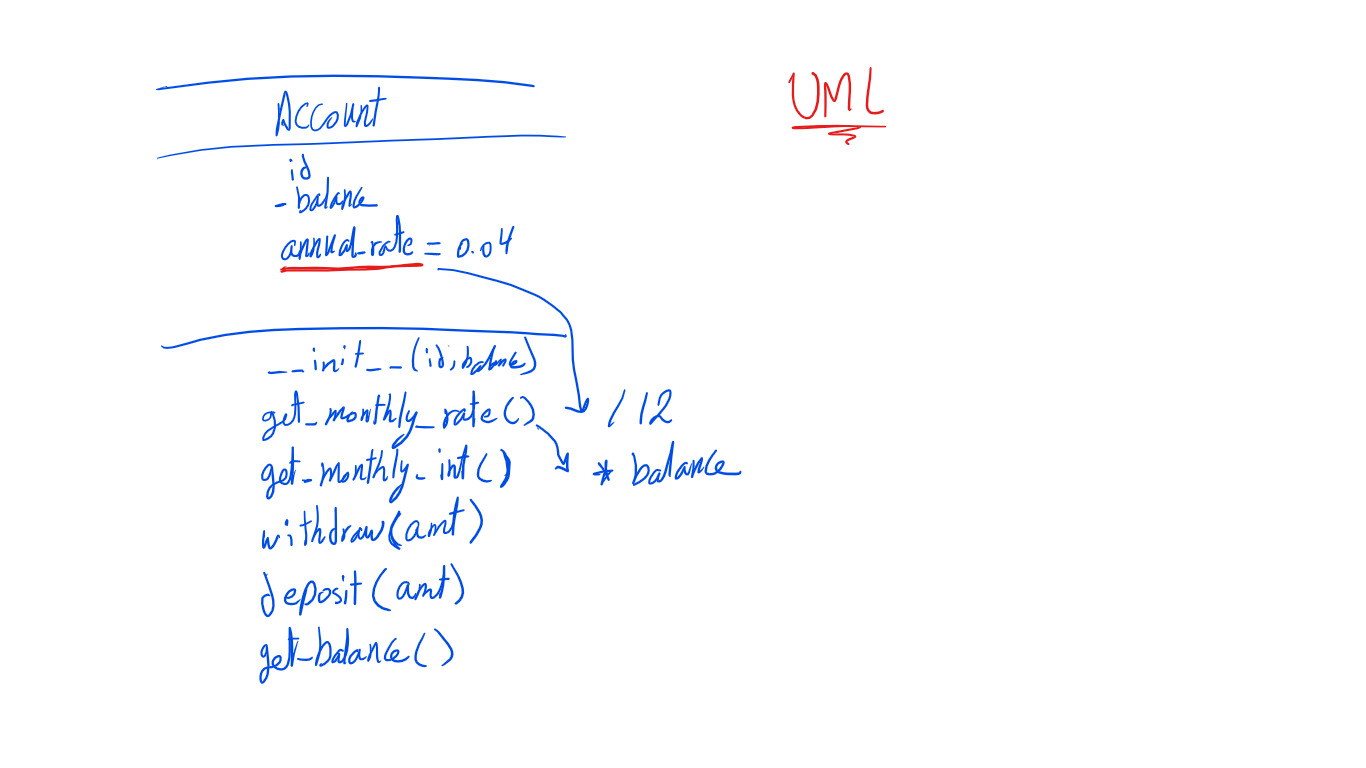 Account
UML
id
-balance
annual_rate = 0.04
__init__(id, balance)
get_monthly_rate() /12
get_monthly_int() * balance
withdraw(amt)
deposit(amt)
get_balance()